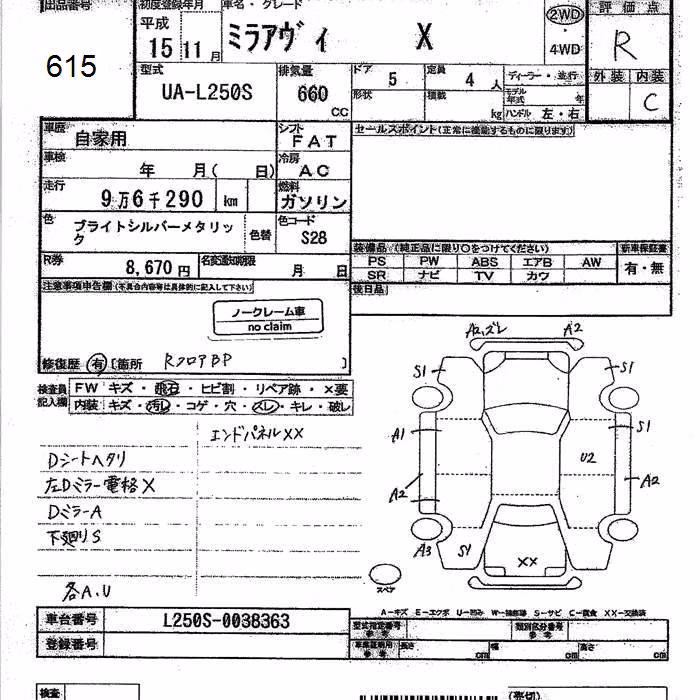 出品番号
615
初度登録年月
平成
15 11 月
車名・グレード
ミラアヴィ X
2WD
・
4WD
評価点
R
外装 内装
C
型式
UA-L250S
排気量
660
CC
ドア
5
定員
4 人
形状
積載
kg
ディーラー・並行
モデル年式
年
ハンドル 左・右
車歴
自家用
シフト
FAT
車検
年 月( 日)
冷房
AC
走行
9万6千290 km
燃料
ガソリン
色
ブライトシルバーメタリック
色替
色コード
S28
R券
8,670円
名変通知期限
月 日
セールスポイント(正常に機能するものに限ります)
装備品 (純正品に限り○をつけてください)
新車保証書
PS PW ABS エアB AW
SR ナビ TV カワ
有・無
後日品
注意事項申告欄(不具合内容等は具体的に記入して下さい)
ノークレーム車
no claim
修復歴 有 〔箇所 RフロアBP 〕
検査員
記入欄
FW キズ・飛石・ヒビ割・リペア跡・×要
内装 キズ・汚レ・コゲ・穴・スレ・キレ・破レ
エンドパネルXX
Dシートヘタリ
左Dミラー電格X
DミラーA
下廻りS
各A.U
A2,ズレ
A2
S1
S1
A1
S1
U2
A2
A2
A3
S1
XX
スペア
A-キズ E-エクボ U-凹み W-補修跡 S-サビ C-腐食 XX-交換済
車台番号
L250S-0038363
登録番号
型式指定番号
参考
類別区分番号
参考
車庫証明用
参考
長さ
cm
幅
cm
高さ
cm
検査
(売切)